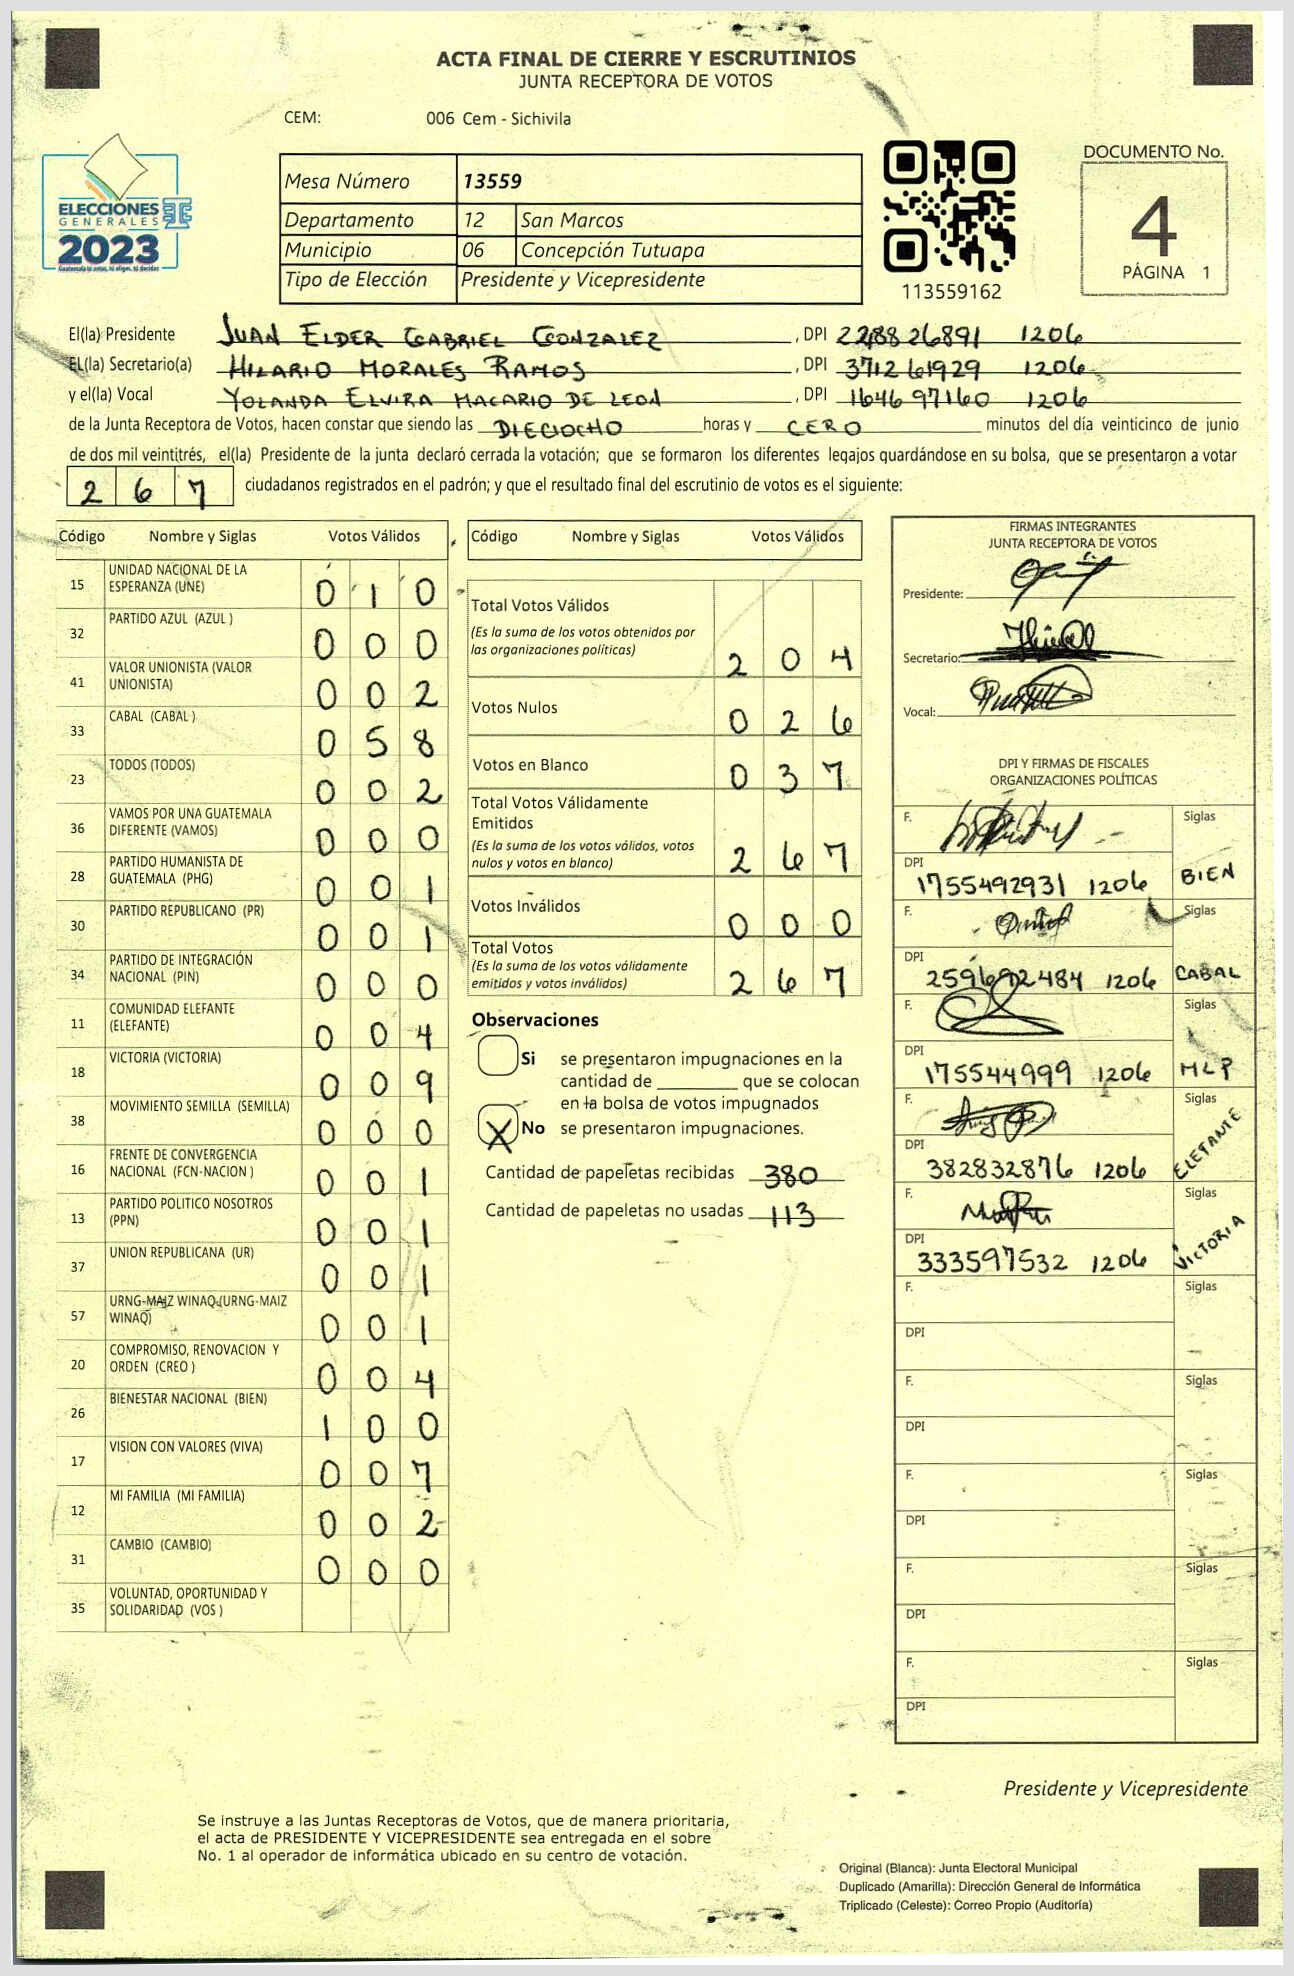 ACTA FINAL DE CIERRE Y ESCRUTINIOS
JUNTA RECEPTORA DE VOTOS
CEM: 006 Cem - Sichivila
ELECCIONES
GENERALES
2023
Mesa Número 13559
Departamento 12 San Marcos
Municipio 06 Concepción Tutuapa
Tipo de Elección Presidente y Vicepresidente
113559162
DOCUMENTO No.
4
PÁGINA 1
El(la) Presidente JUAN ELDER GABRIEL GONZALEZ, DPI 228826891 1206
EL(la) Secretario(a) HILARIO MORALES RAMOS, DPI 371261929 1206
y el(la) Vocal YOLANDA ELVIRA MACARIO DE LEON, DPI 164697160 1206
de la Junta Receptora de Votos, hacen constar que siendo las DIECIOCHO horas y CERO minutos del día veinticinco de junio
de dos mil veintitrés, el(la) Presidente de la junta declaró cerrada la votación; que se formaron los diferentes legajos quardándose en su bolsa, que se presentaron a votar
267 ciudadanos registrados en el padrón; y que el resultado final del escrutinio de votos es el siguiente:
Código Nombre y Siglas Votos Válidos
15 UNIDAD NACIONAL DE LA ESPERANZA (UNE) 010
32 PARTIDO AZUL (AZUL ) 000
41 VALOR UNIONISTA (VALOR UNIONISTA) 002
33 CABAL (CABAL ) 058
23 TODOS (TODOS) 002
36 VAMOS POR UNA GUATEMALA DIFERENTE (VAMOS) 000
28 PARTIDO HUMANISTA DE GUATEMALA (PHG) 001
30 PARTIDO REPUBLICANO (PR) 001
34 PARTIDO DE INTEGRACIÓN NACIONAL (PIN) 000
11 COMUNIDAD ELEFANTE (ELEFANTE) 004
18 VICTORIA (VICTORIA) 009
38 MOVIMIENTO SEMILLA (SEMILLA) 000
16 FRENTE DE CONVERGENCIA NACIONAL (FCN-NACION ) 001
13 PARTIDO POLITICO NOSOTROS (PPN) 001
37 UNION REPUBLICANA (UR) 001
57 URNG-MAIZ WINAQ (URNG-MAIZ WINAQ) 001
20 COMPROMISO, RENOVACION Y ORDEN (CREO ) 004
26 BIENESTAR NACIONAL (BIEN) 100
17 VISION CON VALORES (VIVA) 007
12 MI FAMILIA (MI FAMILIA) 002
31 CAMBIO (CAMBIO) 000
35 VOLUNTAD, OPORTUNIDAD Y SOLIDARIDAD (VOS )
Código Nombre y Siglas Votos Válidos
Total Votos Válidos
(Es la suma de los votos obtenidos por
las organizaciones políticas) 204
Votos Nulos 026
Votos en Blanco 037
Total Votos Válidamente
Emitidos
(Es la suma de los votos válidos, votos
nulos y votos en blanco) 267
Votos Inválidos 000
Total Votos
(Es la suma de los votos válidamente
emitidos y votos inválidos) 267
Observaciones
Si se presentaron impugnaciones en la
cantidad de ________ que se colocan
en la bolsa de votos impugnados
X No se presentaron impugnaciones.
Cantidad de papeletas recibidas 380
Cantidad de papeletas no usadas 113
FIRMAS INTEGRANTES
JUNTA RECEPTORA DE VOTOS
Presidente:
Secretario:
Vocal:
DPI Y FIRMAS DE FISCALES
ORGANIZACIONES POLÍTICAS
F. Siglas
DPI 1755492931 1206 BIEN
F. Siglas
DPI 259692484 1206 CABAL
F. Siglas
DPI 175544999 1206 MLP
F. Siglas
DPI 382832876 1206 ELEFANTE
F. Siglas
DPI 333597532 1206 VICTORIA
F. Siglas
DPI
F. Siglas
DPI
F. Siglas
DPI
F. Siglas
DPI
F. Siglas
DPI
Presidente y Vicepresidente
Se instruye a las Juntas Receptoras de Votos, que de manera prioritaria,
el acta de PRESIDENTE Y VICEPRESIDENTE sea entregada en el sobre
No. 1 al operador de informática ubicado en su centro de votación.
Original (Blanca): Junta Electoral Municipal
Duplicado (Amarilla): Dirección General de Informática
Triplicado (Celeste): Correo Propio (Auditoría)